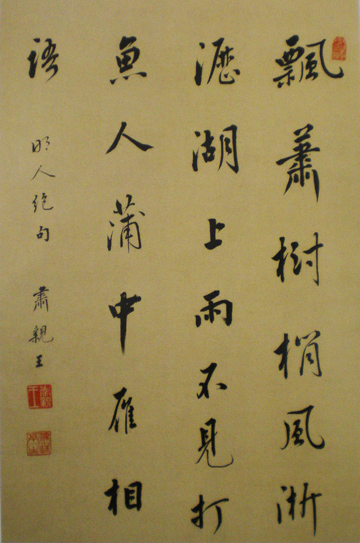 飄蕭樹梢風淅
瀝湖上雨不見打
魚人蒲中雁相
語
明人絕句 肅親王